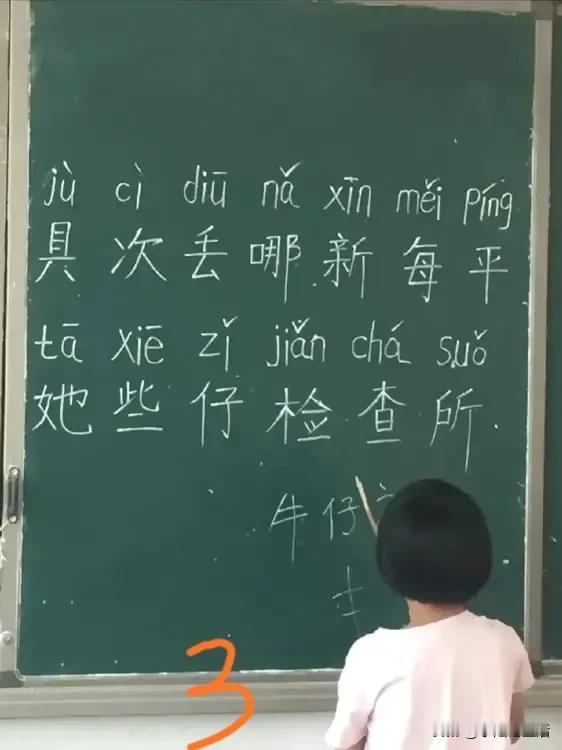 jù cì diū nǎ xīn měi píng
具 次 丢 哪 新 每 平
tā xiē zǐ jiǎn chá suǒ
她 些 仔 检 查 所
牛 仔
3